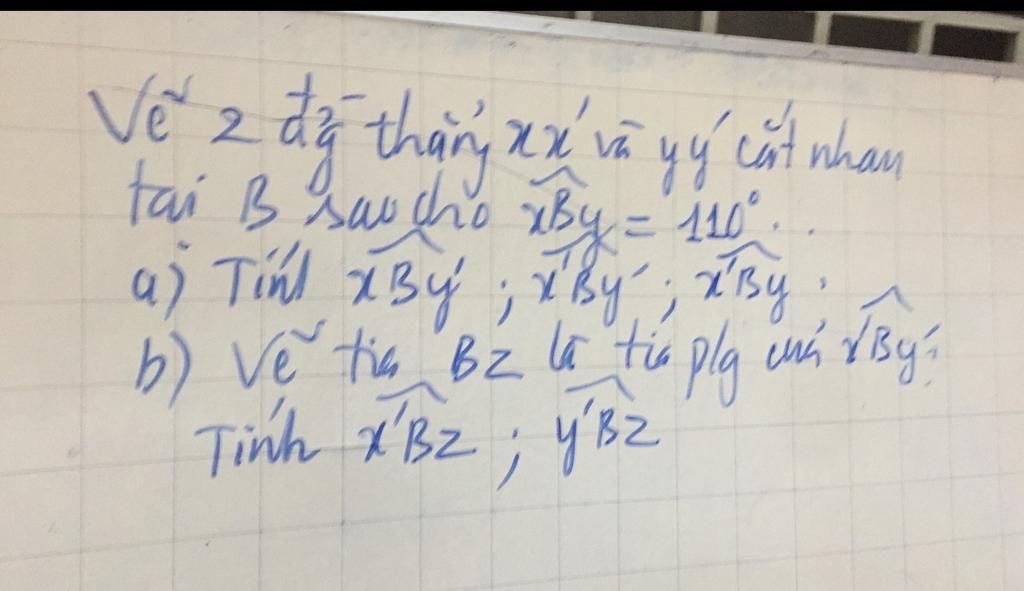 Vẽ 2 đḡ thẳng xx' và yy' cắt nhau
tại B sao cho xBy = 110°.
a) Tính xBy' ; x'By' ; x'By.
b) Vẽ tia Bz là tia p/g của x'By'.
Tính x'Bz ; y'Bz